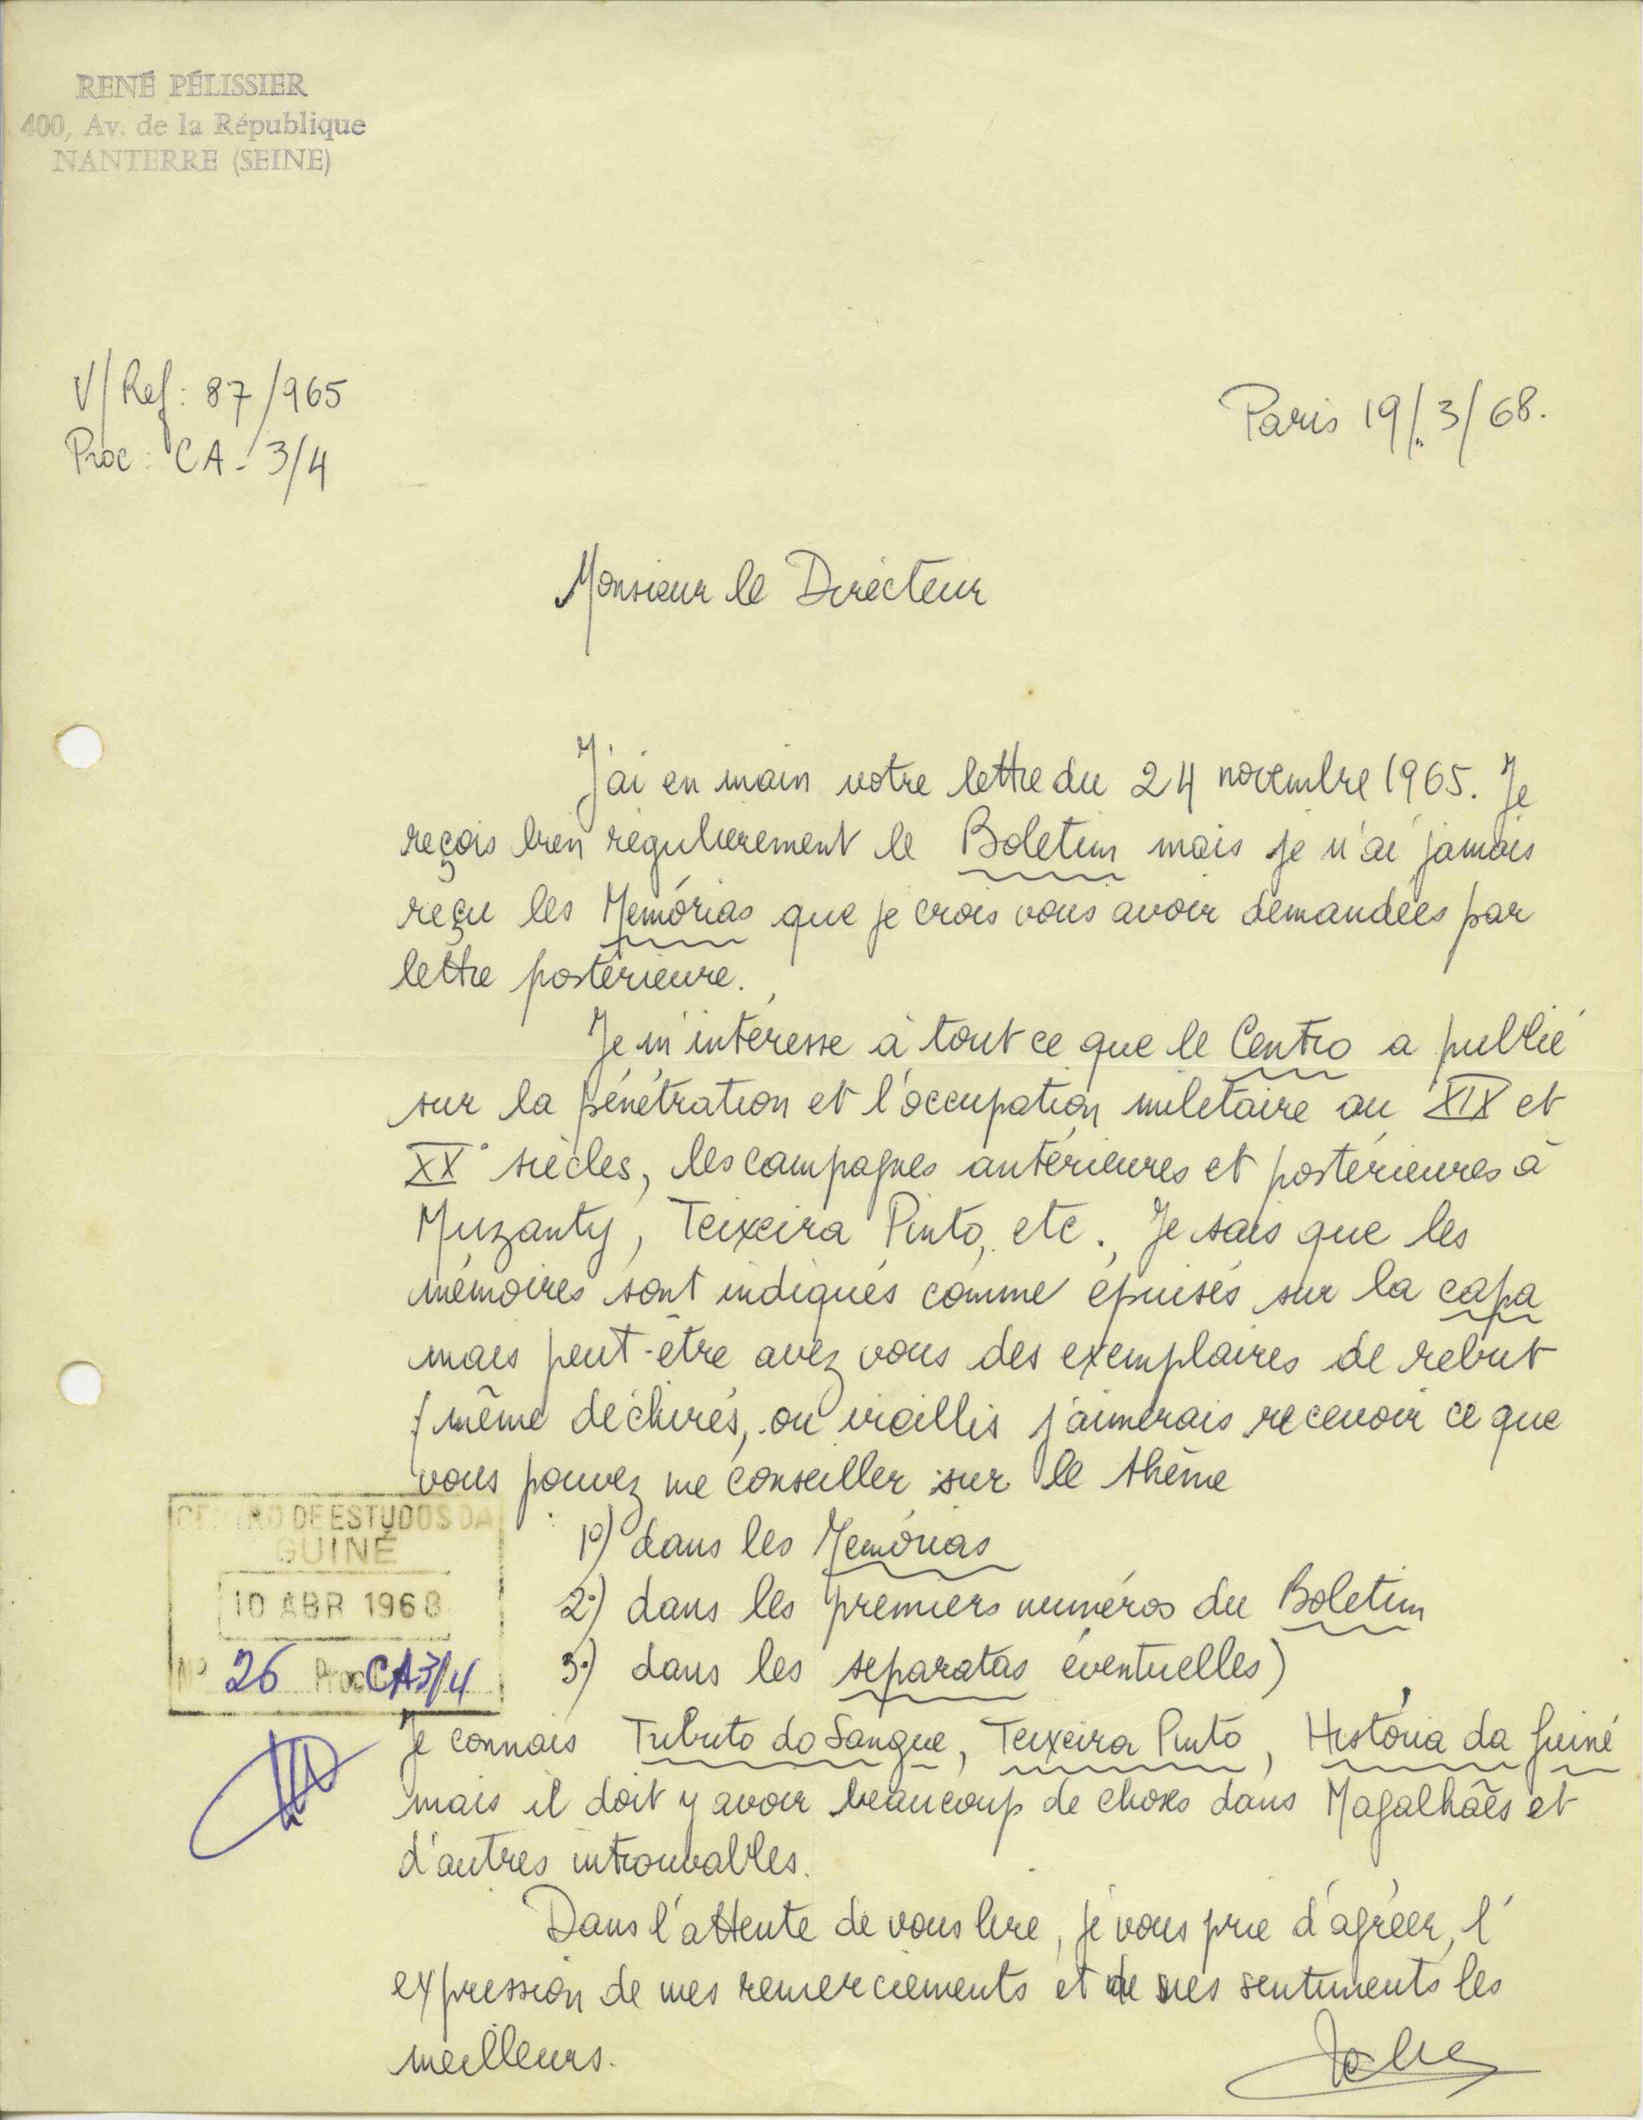 RENÉ PÉLISSIER
400, Av. de la République
NANTERRE (SEINE)
V/Ref: 87/965
Proc: CA-3/4
Paris 19/3/68.
Monsieur le Directeur
J'ai en main votre lettre du 24 novembre 1965. Je
reçois bien régulièrement le Boletim mais je n'ai jamais
reçu les Memórias que je crois vous avoir demandées par
lettre postérieure.
Je m'intéresse à tout ce que le Centro a publié
sur la pénétration et l'occupation militaire au XIX et
XX° siècles, les campagnes antérieures et postérieures à
Muzanty, Teixeira Pinto, etc. Je sais que les
mémoires sont indiqués comme épuisés sur la capa
mais peut-être avez vous des exemplaires de rebut
(même déchirés, ou vieillis j'aimerais recevoir ce que
vous pouvez me conseiller sur le thème
1°) dans les Memórias
2°) dans les premiers numéros du Boletim
3°) dans les separatas éventuelles)
CENTRO DE ESTUDOS DA
GUINÉ
10 ABR 1968
Nº 26 Proc CA3/4
Je connais Tributo do Sangue, Teixeira Pinto, História da Guiné
mais il doit y avoir beaucoup de choses dans Magalhães et
d'autres introuvables.
Dans l'attente de vous lire, je vous prie d'agréer, l'
expression de mes remerciements et de mes sentiments les
meilleurs.